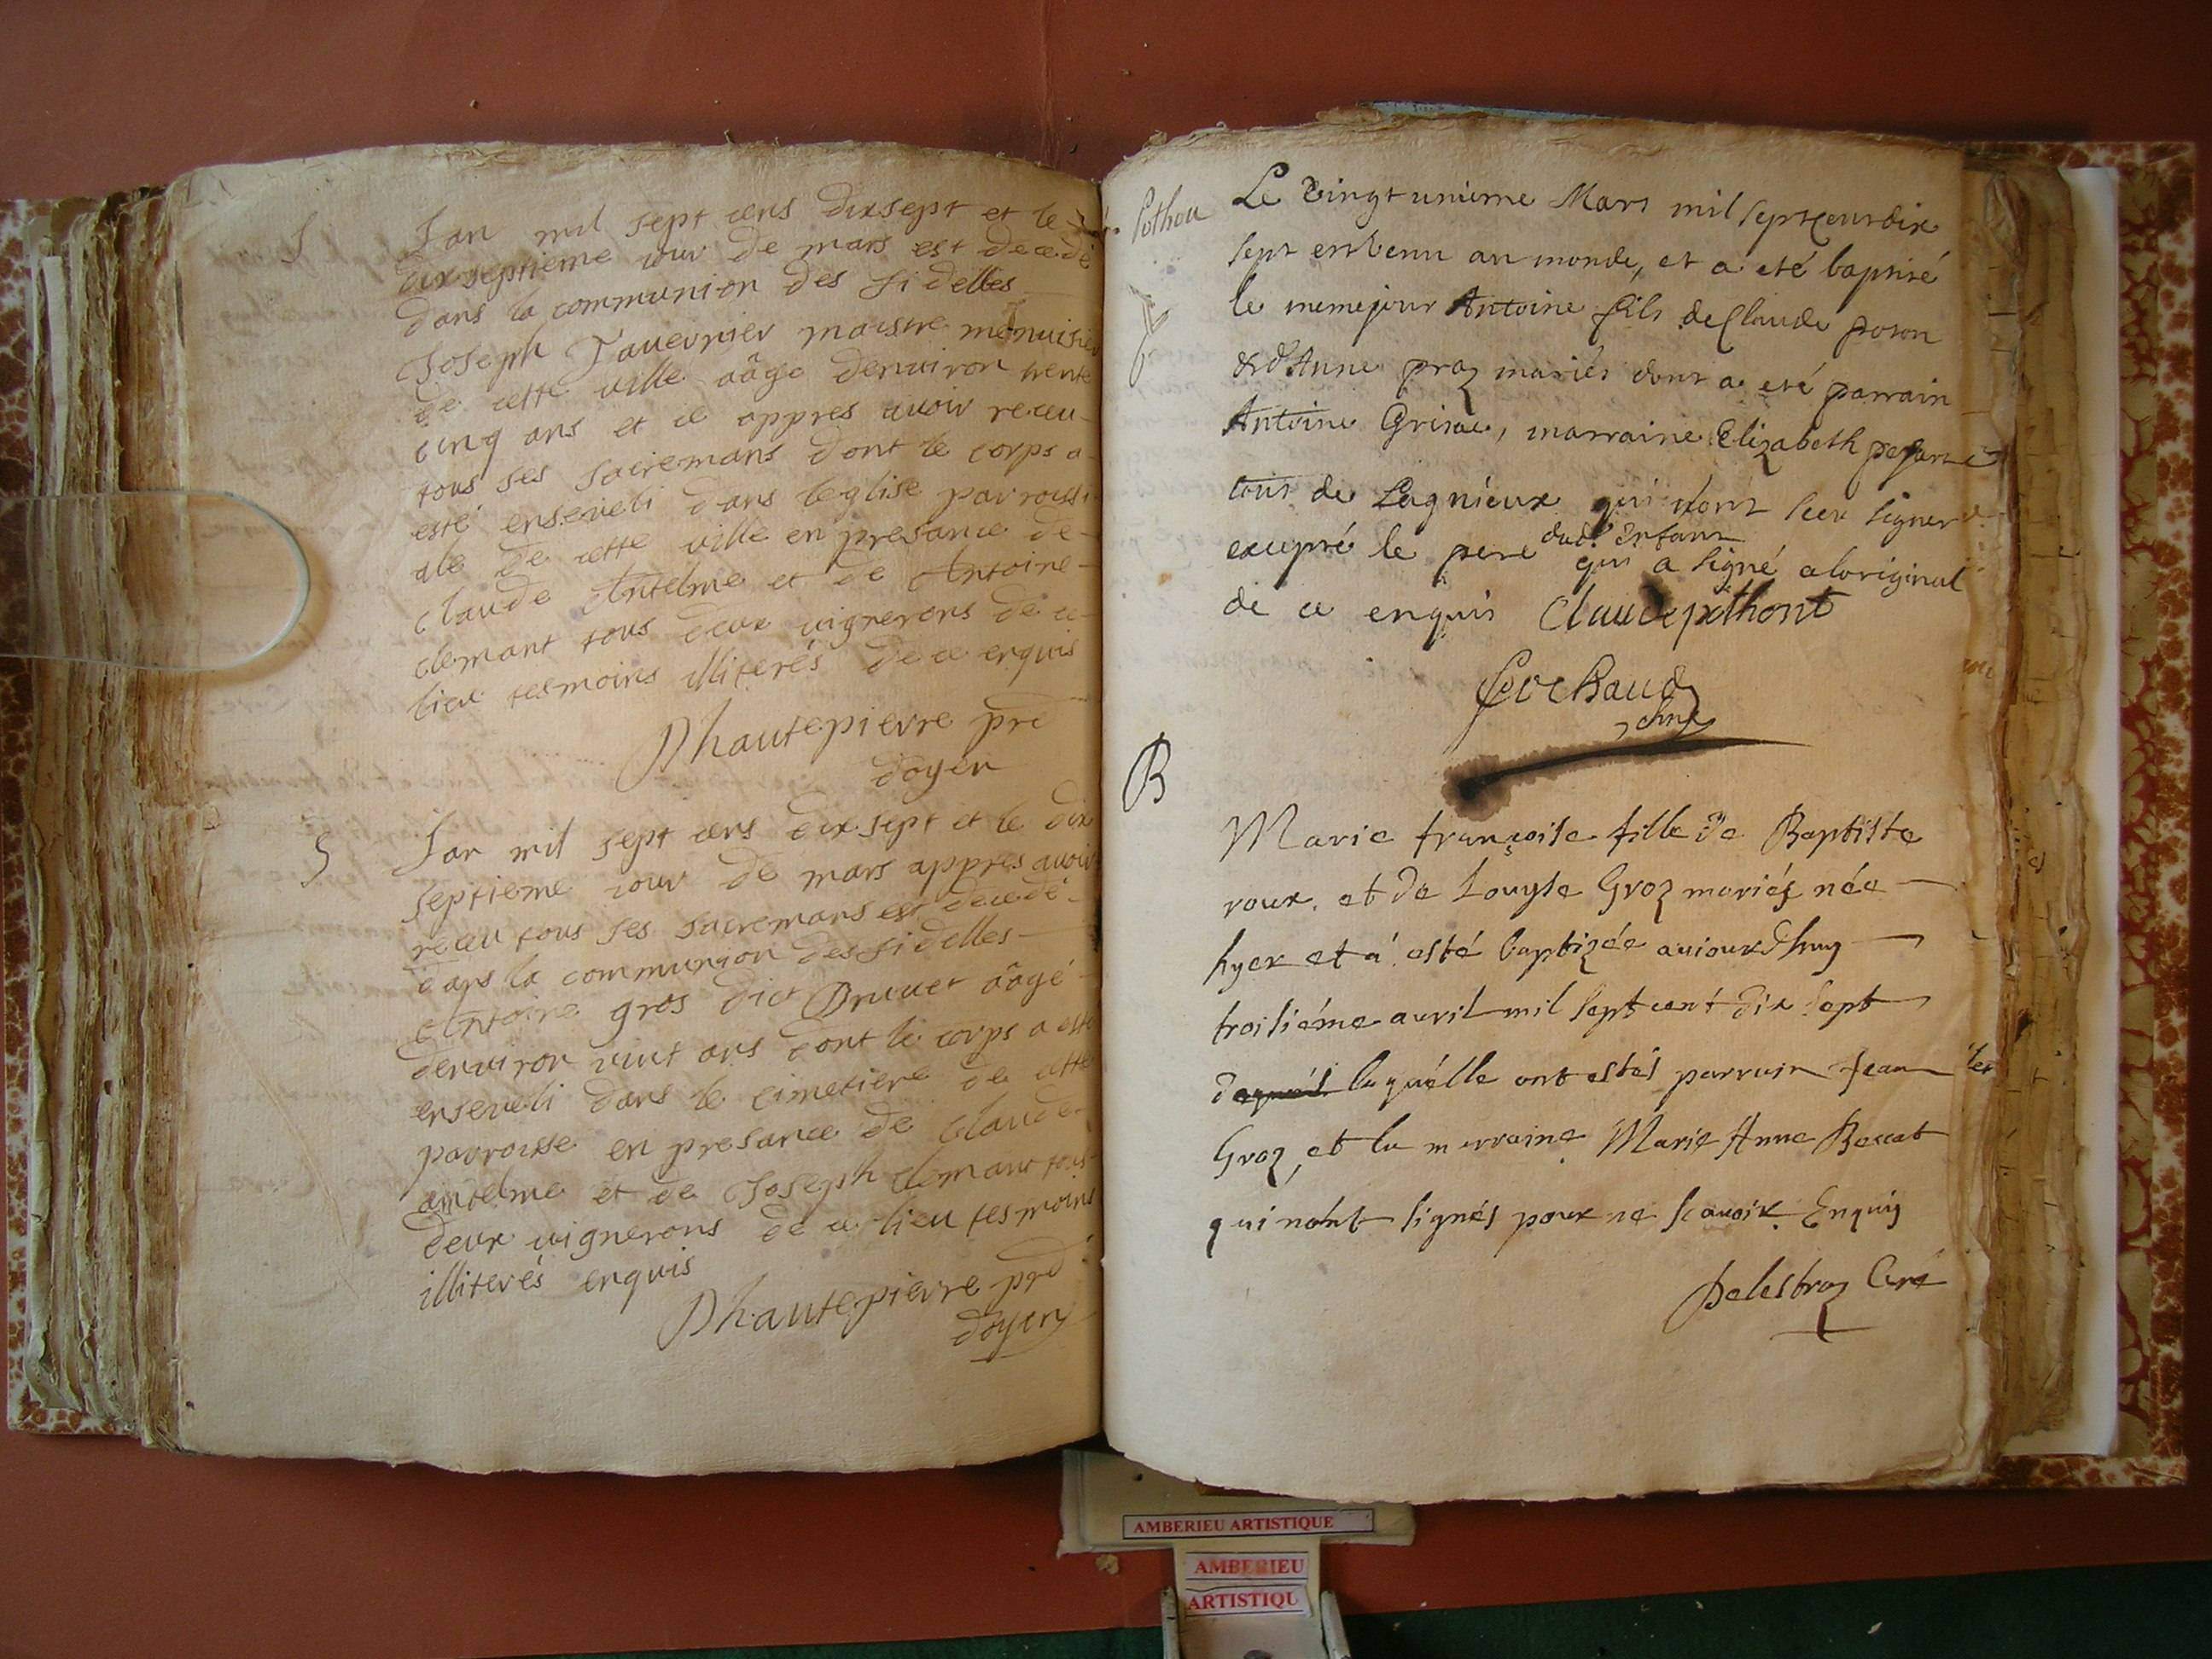 S
Lan mil sept cens dixsept et le
dixseptieme iour de mars est decedé
dans la communion des fidelles
Joseph Tauernier maistre menuisier
de cette ville aâge denuiron trente
cinq ans et ce appres auoir receu
tous ses sacremans dont le corps a
esté enseueli dans leglise parroissi
ale de cette ville en presance de
claude Antelme et de Antoine
clemant tous deux uignerons de ce
lieu tesmoins illiterés de ce enquis
Dhautepierre pre
doyen
S
Lan mil sept cens dix sept et le dix
septieme iour de mars appres auoir
receu tous ses sacremans est decedé
dans la communion des fidelles
Antoine gros dict Bruuet aâgé
denuiron uint ans dont le corps a esté
enseueli dans le cimetiere de cette
parroisse en presance de claude
antelme et de Joseph clemant tous
deux uignerons de ce lieu tesmoins
illiterés enquis
Dhautepierre pre
doyen
Pothon
Le Vingt unieme Mars mil sept cent dix
sept est venu au monde, et a eté baptisé
le meme jour Antoine fils de Claude poton
& d'Anne praz mariés dont a eté parrain
Antoine Grisac, marraine Elizabeth
tous de Lagnieux qui n'ont sceu signer
excepté le pere dud. Enfant qui a signé a loriginal
de ce enquis Claude pothont
B
Marie françoise fille de Baptiste
roux. et de Louyse Groz mariés née
hyer et a esté baptizée auiourdhuy
troisiéme auril mil sept cent dix sept
laquélle ont estés parrain Jean
Groz, et la marraine Marie Anne Beccat
qui nont signés pour ne scauoir. Enquis
Delestraz Curé
AMBERIEU ARTISTIQUE
AMBERIEU
ARTISTIQU